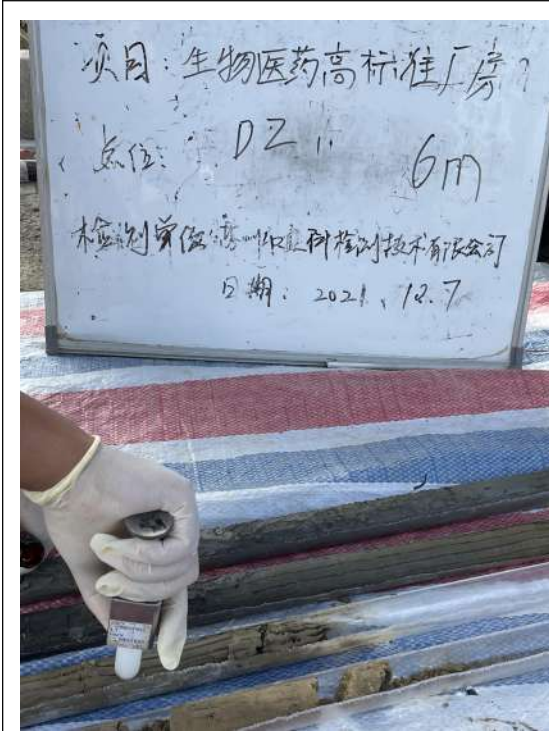 项目：生物医药高标准厂房
点位： DZ1 6m
检测单位：苏州 检测技术有限公司
日期：2021.12.7